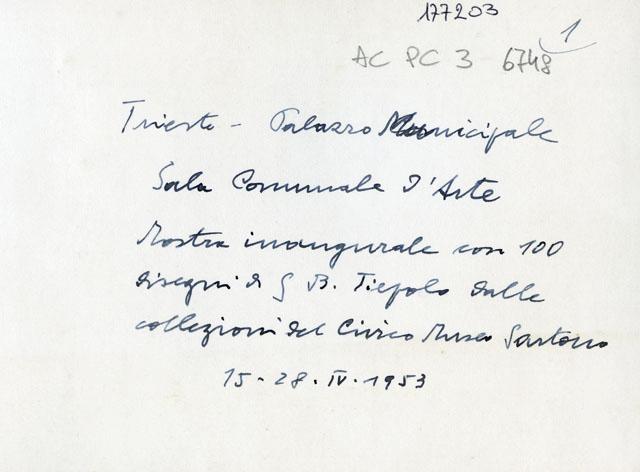 177203
1
AC PC 3 6748
Trieste - Palazzo Municipale
Sala Comunale d'Arte
Mostra inaugurale con 100
disegni di G B. Tiepolo dalle
collezioni del Civico Museo Sartorio
15 - 28 · IV · 1953